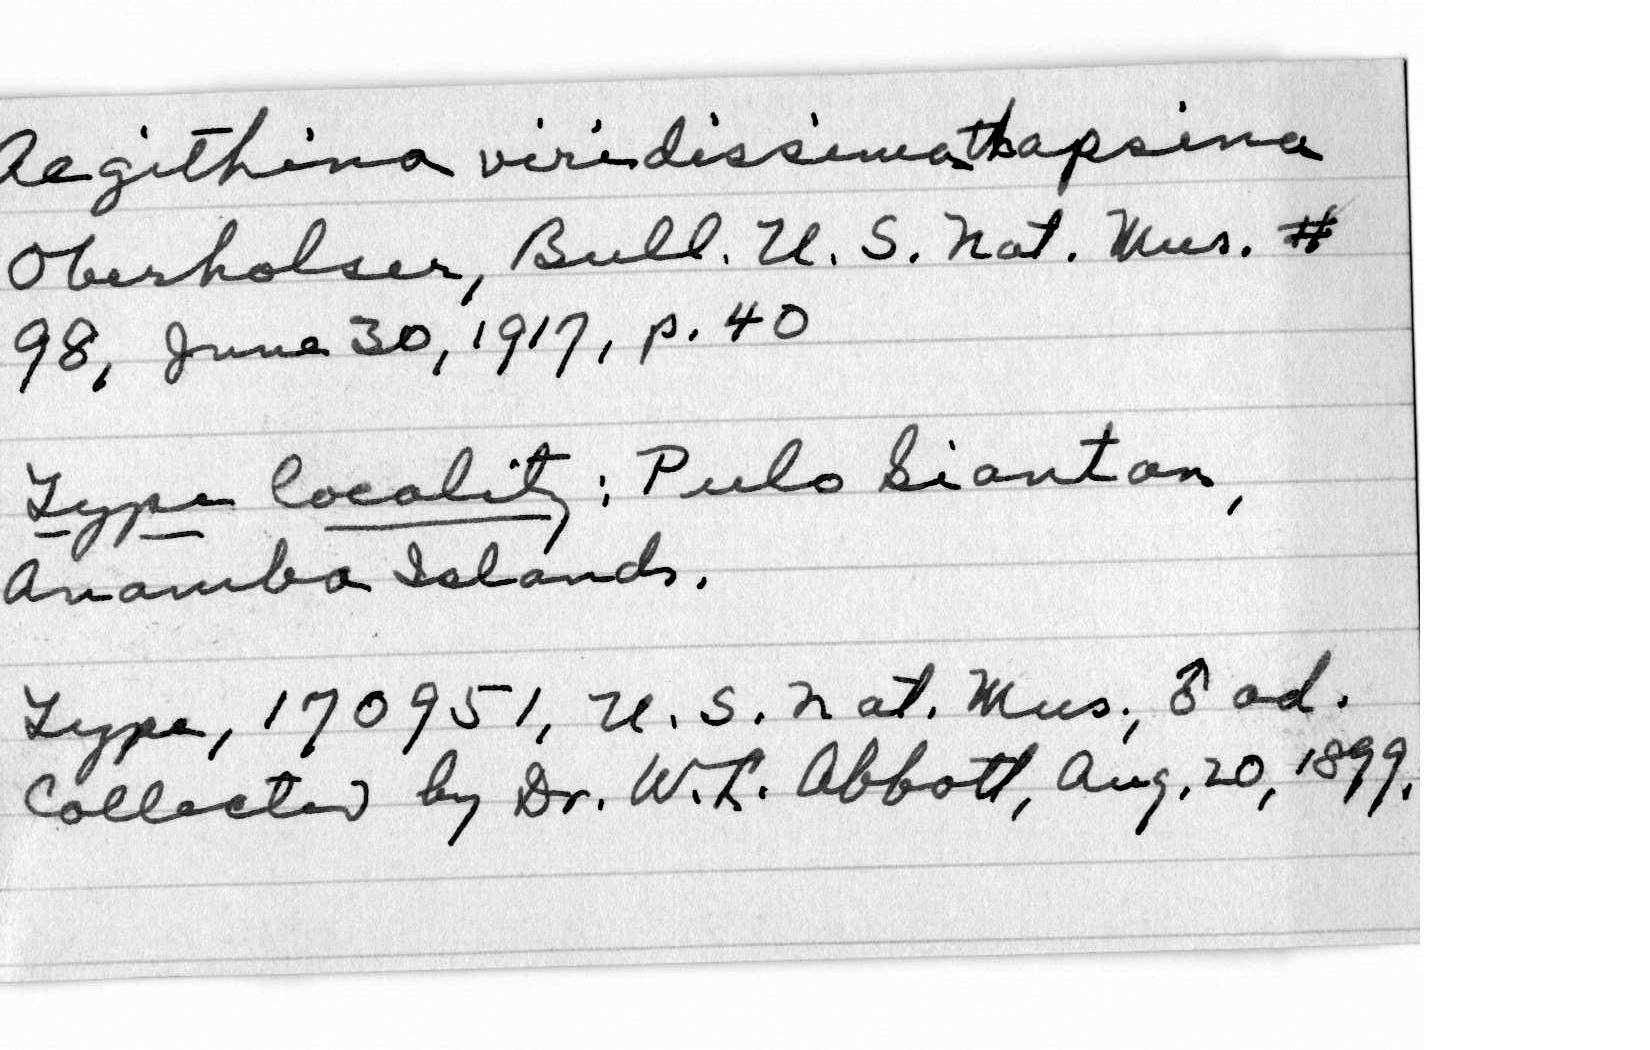 Aegithina viridissima thapsina
Oberholser, Bull. U. S. Nat. Mus. #
98, June 30, 1917, p. 40
Type locality: Pulo Siantan,
Anamba Islands.
Type, 170951, U. S. Nat. Mus., ♂ ad.
Collected by Dr. W. L. Abbott, Aug. 20, 1899.